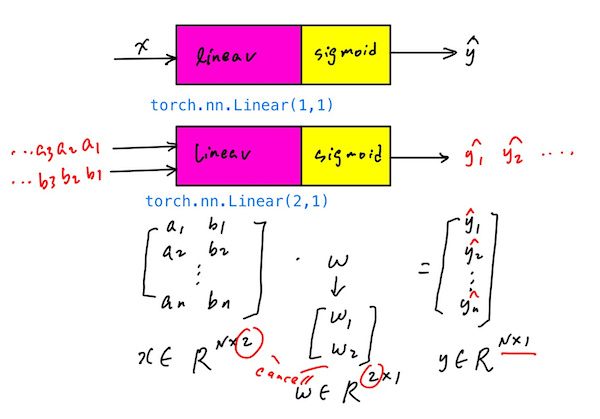 x linear sigmoid ŷ
torch.nn.Linear(1,1)
...a3 a2 a1
...b3 b2 b1
linear sigmoid ŷ1 ŷ2 ....
torch.nn.Linear(2,1)
[a1 b1
a2 b2
⋮
an bn] · w = [ŷ1
ŷ2
⋮
ŷn]
↓
[w1
w2]
x ∈ R^N×2
cancel
w ∈ R^2×1
y ∈ R^N×1